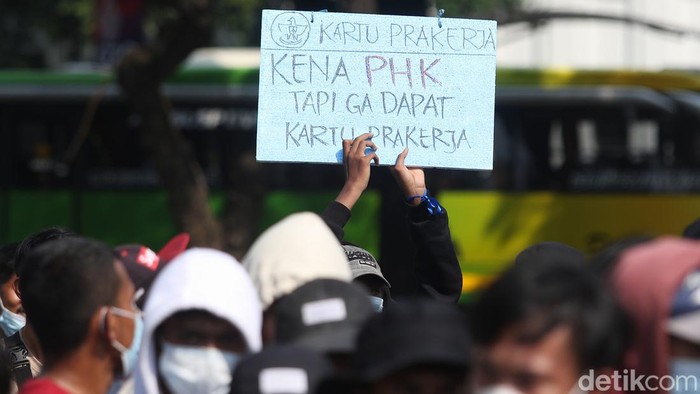 KARTU PRAKERJA
KENA PHK
TAPI GA DAPAT
KARTU PRAKERJA
detikcom